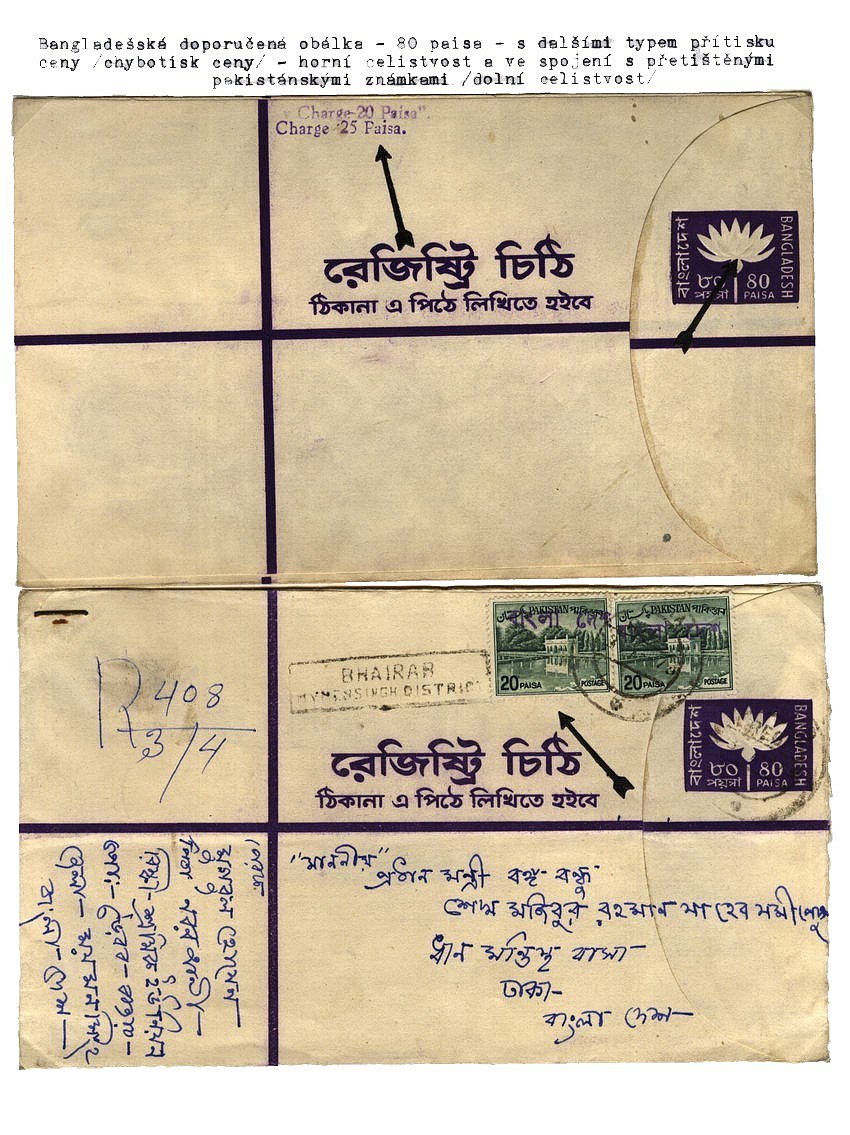 Bangladešská doporučená obálka - 80 paisa - s dalšími typem přítisku
ceny /chybotisk ceny/ - horní celistvost a ve spojení s přetištěnými
pakistánskými známkami /dolní celistvost/
Charge 20 Paisa".
Charge 25 Paisa.
রেজিষ্ট্রি চিঠি
ঠিকানা এ পিঠে লিখিতে হইবে
বাংলাদেশ
BANGLADESH
৮০ 80
পয়সা PAISA
PAKISTAN পাকিস্তান
বাংলা দেশ
20 PAISA POSTAGE
PAKISTAN পাকিস্তান
বাংলা দেশ
20 PAISA POSTAGE
BHAIRAB
MYMENSINGH DISTRICT
R 408
3/4
রেজিষ্ট্রি চিঠি
ঠিকানা এ পিঠে লিখিতে হইবে
বাংলাদেশ
BANGLADESH
৮০ 80
পয়সা PAISA
"মাননীয়"
প্রধান মন্ত্রী বঙ্গ বন্ধু
শেখ মজিবুর রহমান সাহেব সমীপেষু
ঢাকা-
বাংলা দেশ-